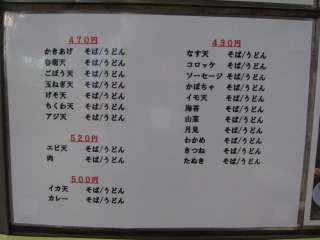 470円
かきあげ そば/うどん
春菊天 そば/うどん
ごぼう天 そば/うどん
玉ねぎ天 そば/うどん
げそ天 そば/うどん
ちくわ天 そば/うどん
アジ天 そば/うどん
520円
エビ天 そば/うどん
肉 そば/うどん
500円
イカ天 そば/うどん
カレー そば/うどん
430円
なす天 そば/うどん
コロッケ そば/うどん
ソーセージ そば/うどん
かぼちゃ そば/うどん
イモ天 そば/うどん
海苔 そば/うどん
山菜 そば/うどん
月見 そば/うどん
わかめ そば/うどん
きつね そば/うどん
たぬき そば/うどん